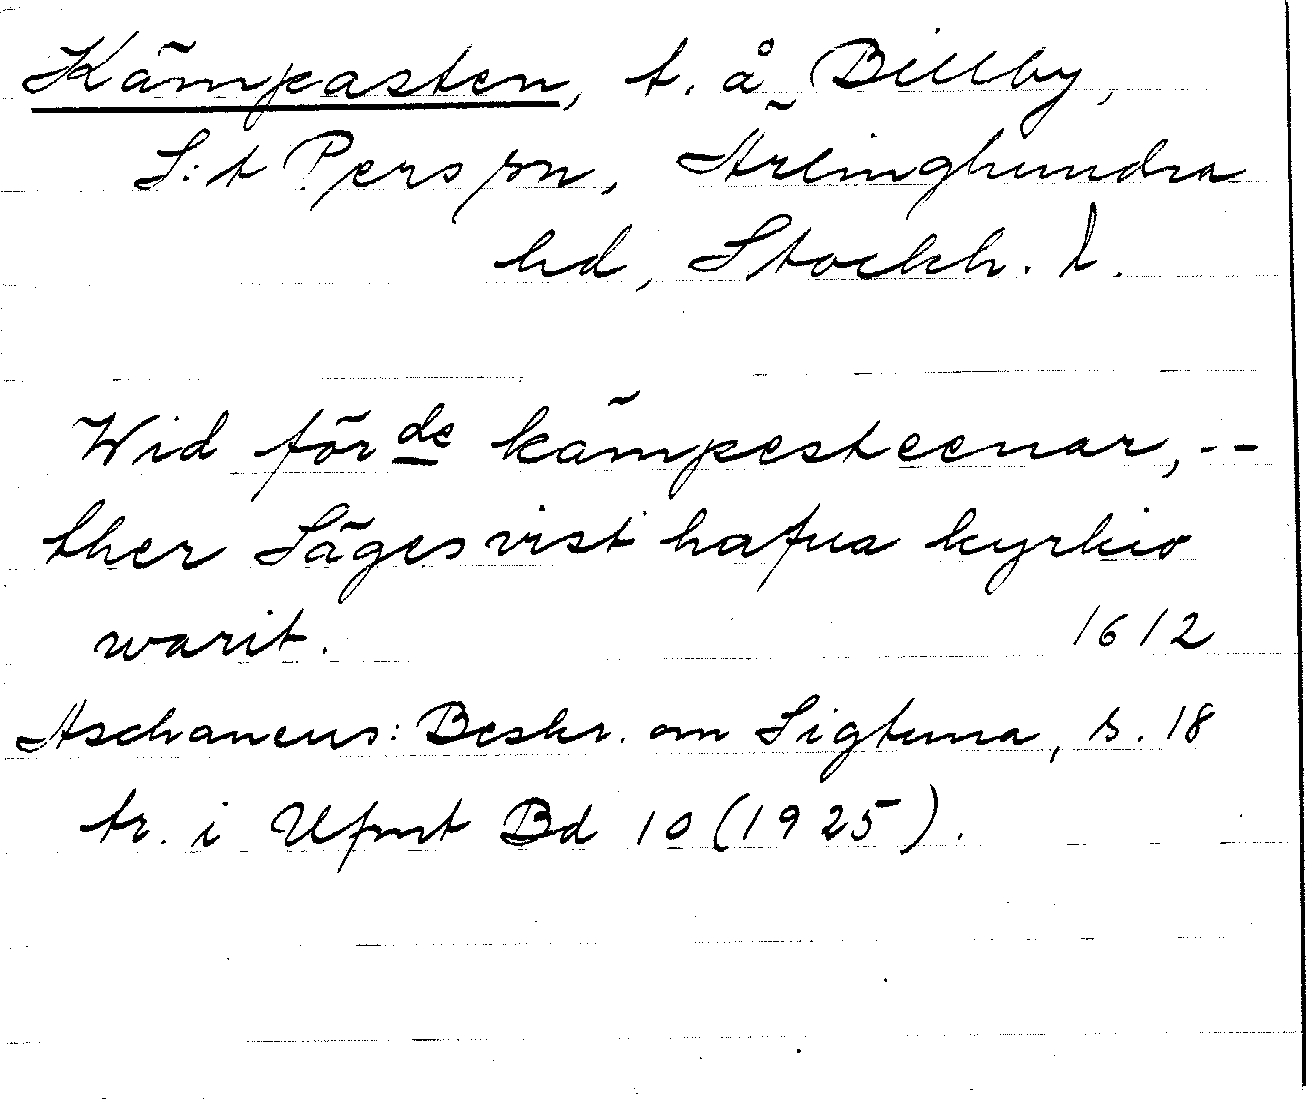 Kämpasten, t. å Billby,
S:t Pers sn, Ärlinghundra
hd, Stockh. l.
Wid förde kämpesteenar, --
ther Säges vist hafua kyrkio
warit. 1612
Aschaneus: Beskr. om Sigtuna, s. 18
tr. i Ufmt Bd 10 (1925).